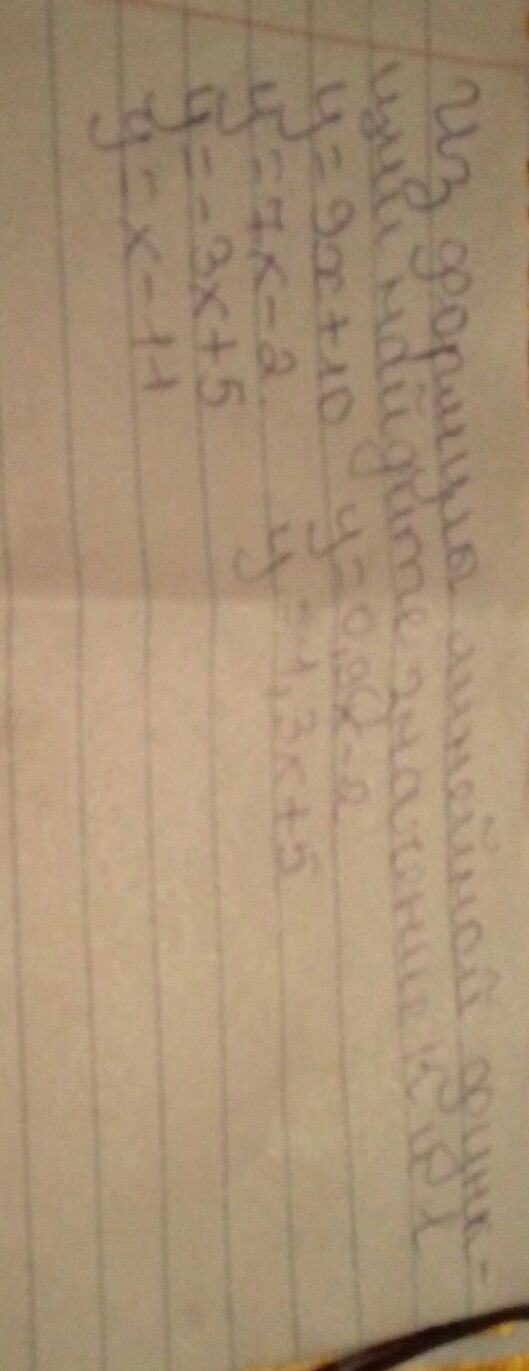 Из формулы линейной функ-
ции найдите значение к и l
y = 9x + 10 y = 0,2x - 2
y = 7x - 2 y = 1,3x + 5
y = -3x + 5
y = x - 11